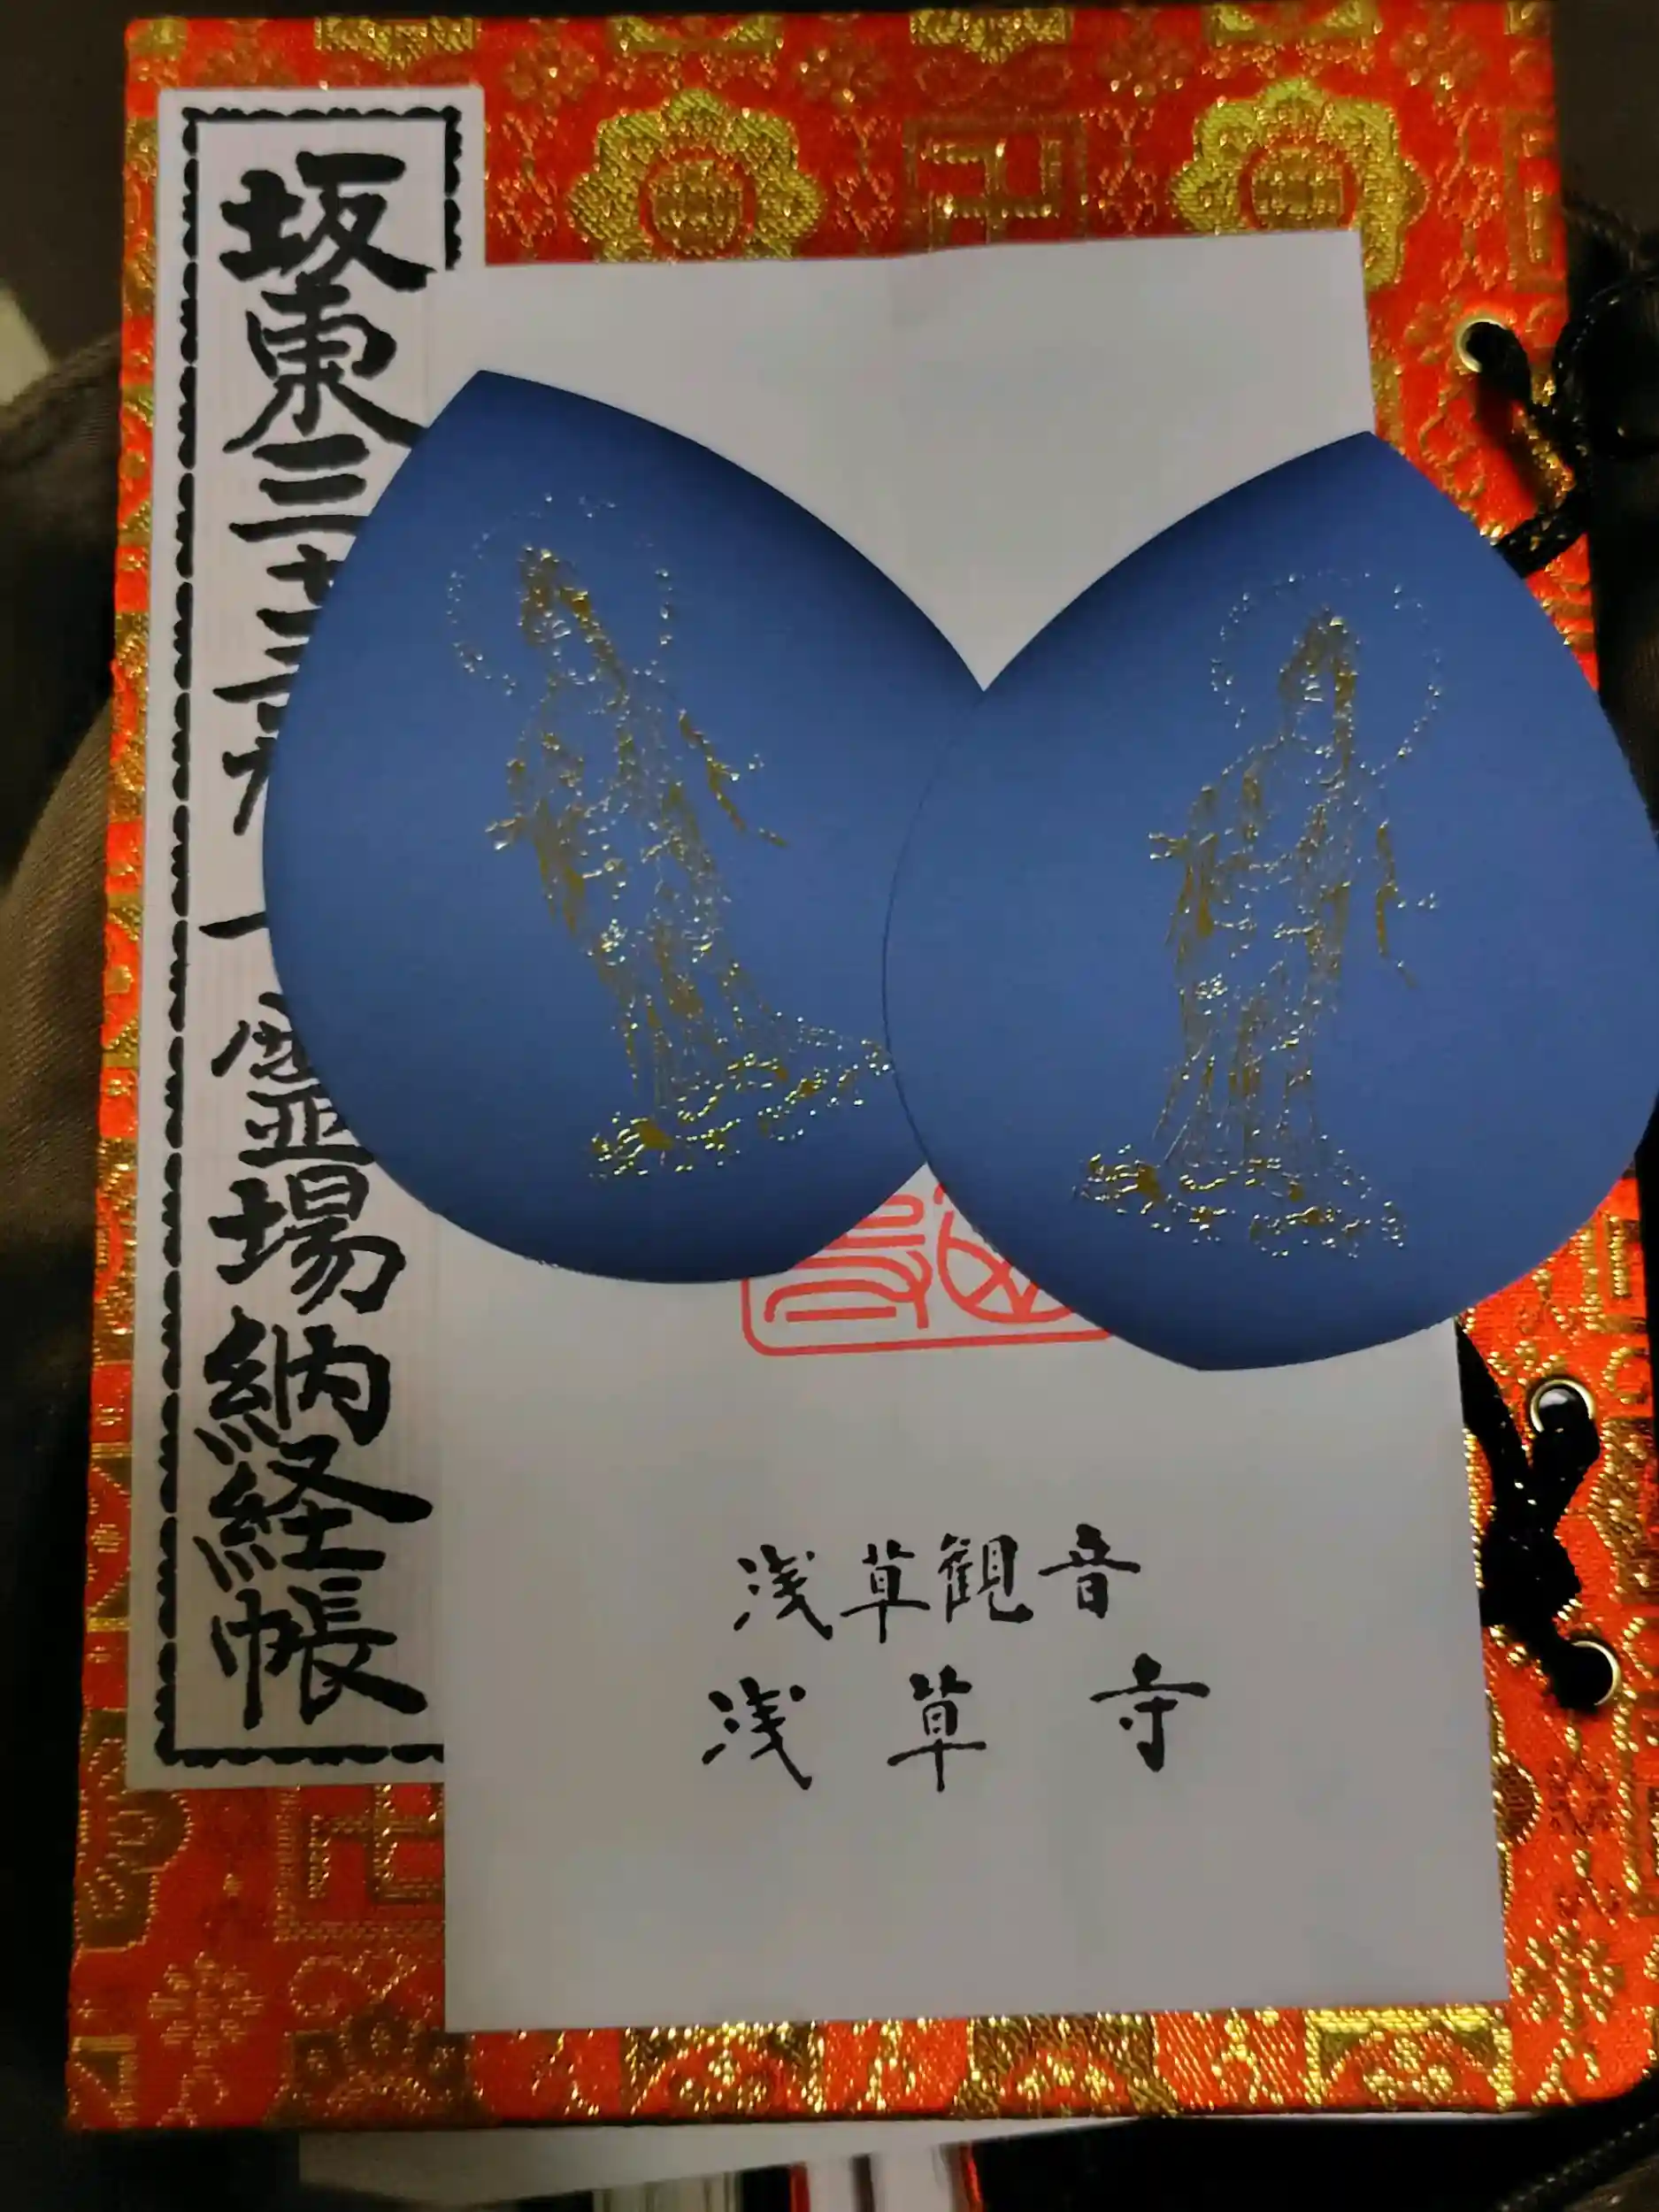 坂東三十三所
一霊場納経帳
浅草観音
浅草寺